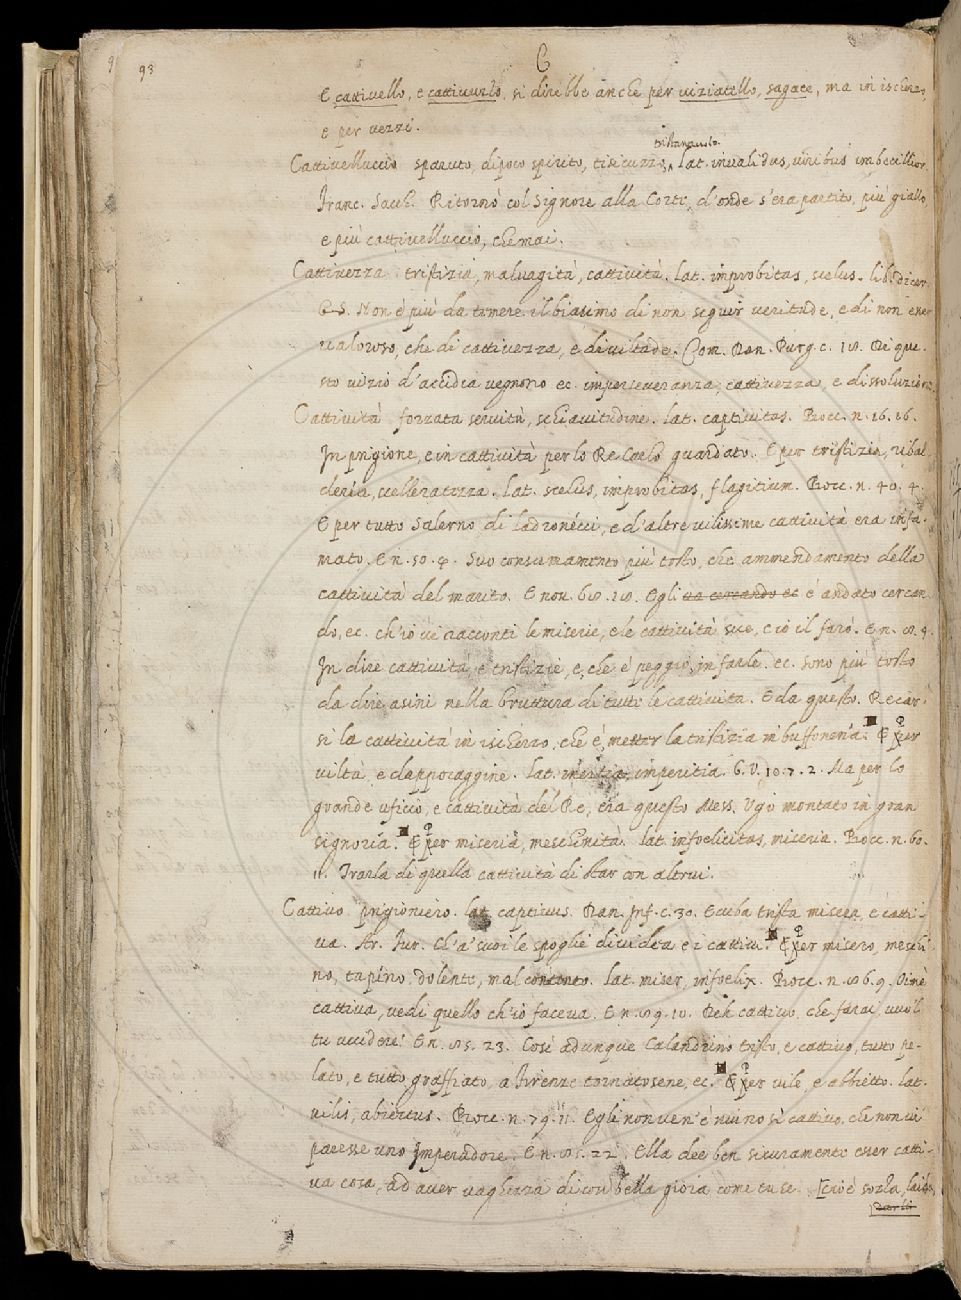 93
C
E cattivello, e cattivuzzo, si direbbe anche per viziatello, sagace, ma in ischerzo,
e per vezzi.
tristanzuolo.
Cattivelluccio sparuto, di poco spirito, tisicuzzo, lat. invalidus, viribus imbecillior.
Franc. Sacch. Ritornò col Signore alla Corte, d'onde s'era partito, più giallo,
e più cattivelluccio, che mai.
Cattivezza tristizia, malvagità, cattività. lat. improbitas, scelus. lib. dicer.
Non è più da temere il biasimo di non seguir veritade, e di non esser
valoroso, che di cattivezza, e di viltade. Com. Dan. Purg. c. 18. Di que-
sto vizio d'accidia vegnono ec. imperseveranza, cattivezza, e dissoluzione.
Cattività forzata servitù, schiavitudine. lat. captivitas. Bocc. n. 16. 16.
In prigione, e in cattività per lo Re Carlo guardato. E per tristizia, ribal-
deria, scelleratezza. lat. scelus, improbitas, flagitium. Bocc. n. 40. 4.
E per tutto Salerno di ladronécci, e d'altre vilissime cattività era infa-
mato. E n. 50. 4. Suo consumamento più tosto, che ammendamento della
cattività del marito. E nov. 68. 18. Egli va cercando ec è andato cercan-
do, ec. ch'io vi racconti le miserie, e le cattività sue, e io il farò. E n. 8. 4.
In dire cattività e tristizie, e, che è peggio, in farle. ec. sono più tosto
da dire asini nella bruttura di tutte le cattività. E da questo. Recar-
si la cattività in ischerzo, che è, metter la tristizia in buffoneria. E per
viltà, e dappocaggine. lat. inertia, imperitia. G. V. 10. 7. 2. Ma per lo
grande uficio, e cattività del Re, era questo Mess. Ugo montato in gran
signoria. E per miseria, meschinità. lat. infoelicitas, miseria. Bocc. n. 60.
11. Trarla di quella cattività di star con altrui.
Cattivo prigioniero. lat. captivus. Dan. Inf. c. 30. Ecuba trista misera, e catti-
va. Fr. Iur. Ch'a' suoi le spoglie divideva e i cattivi. E per misero, meschi-
no, tapino dolente, mal contento. lat. miser, infoelix. Bocc. n. 86. 9. Oimè
cattiva, vedi quello ch'io faceva. E n. 89. 10. Deh cattivo, che farai, vuo'l
tu uccidere? E n. 85. 23. Così adunque Calandrino tristo, e cattivo, tutto pe-
lato, e tutto graffiato, a Firenze tornatosene, ec. E per vile, e abbietto. lat.
vilis, abiectus. Bocc. n. 79. 11. Egli non ven'è niuno sì cattivo, che non vi
paresse uno Imperadore. E n. 85. 22. Ella dee ben sicuramente esser catti-
va cosa, ad aver vaghezza di così bella gioia come tu se. [cioè sozza, laida